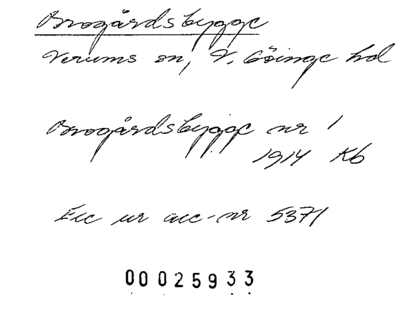 Brogårdsbygge
Verums sn, V. Göinge hd
Brogårdsbygge nr 1
1914 Kb
Exc ur acc-nr 5371
00025933